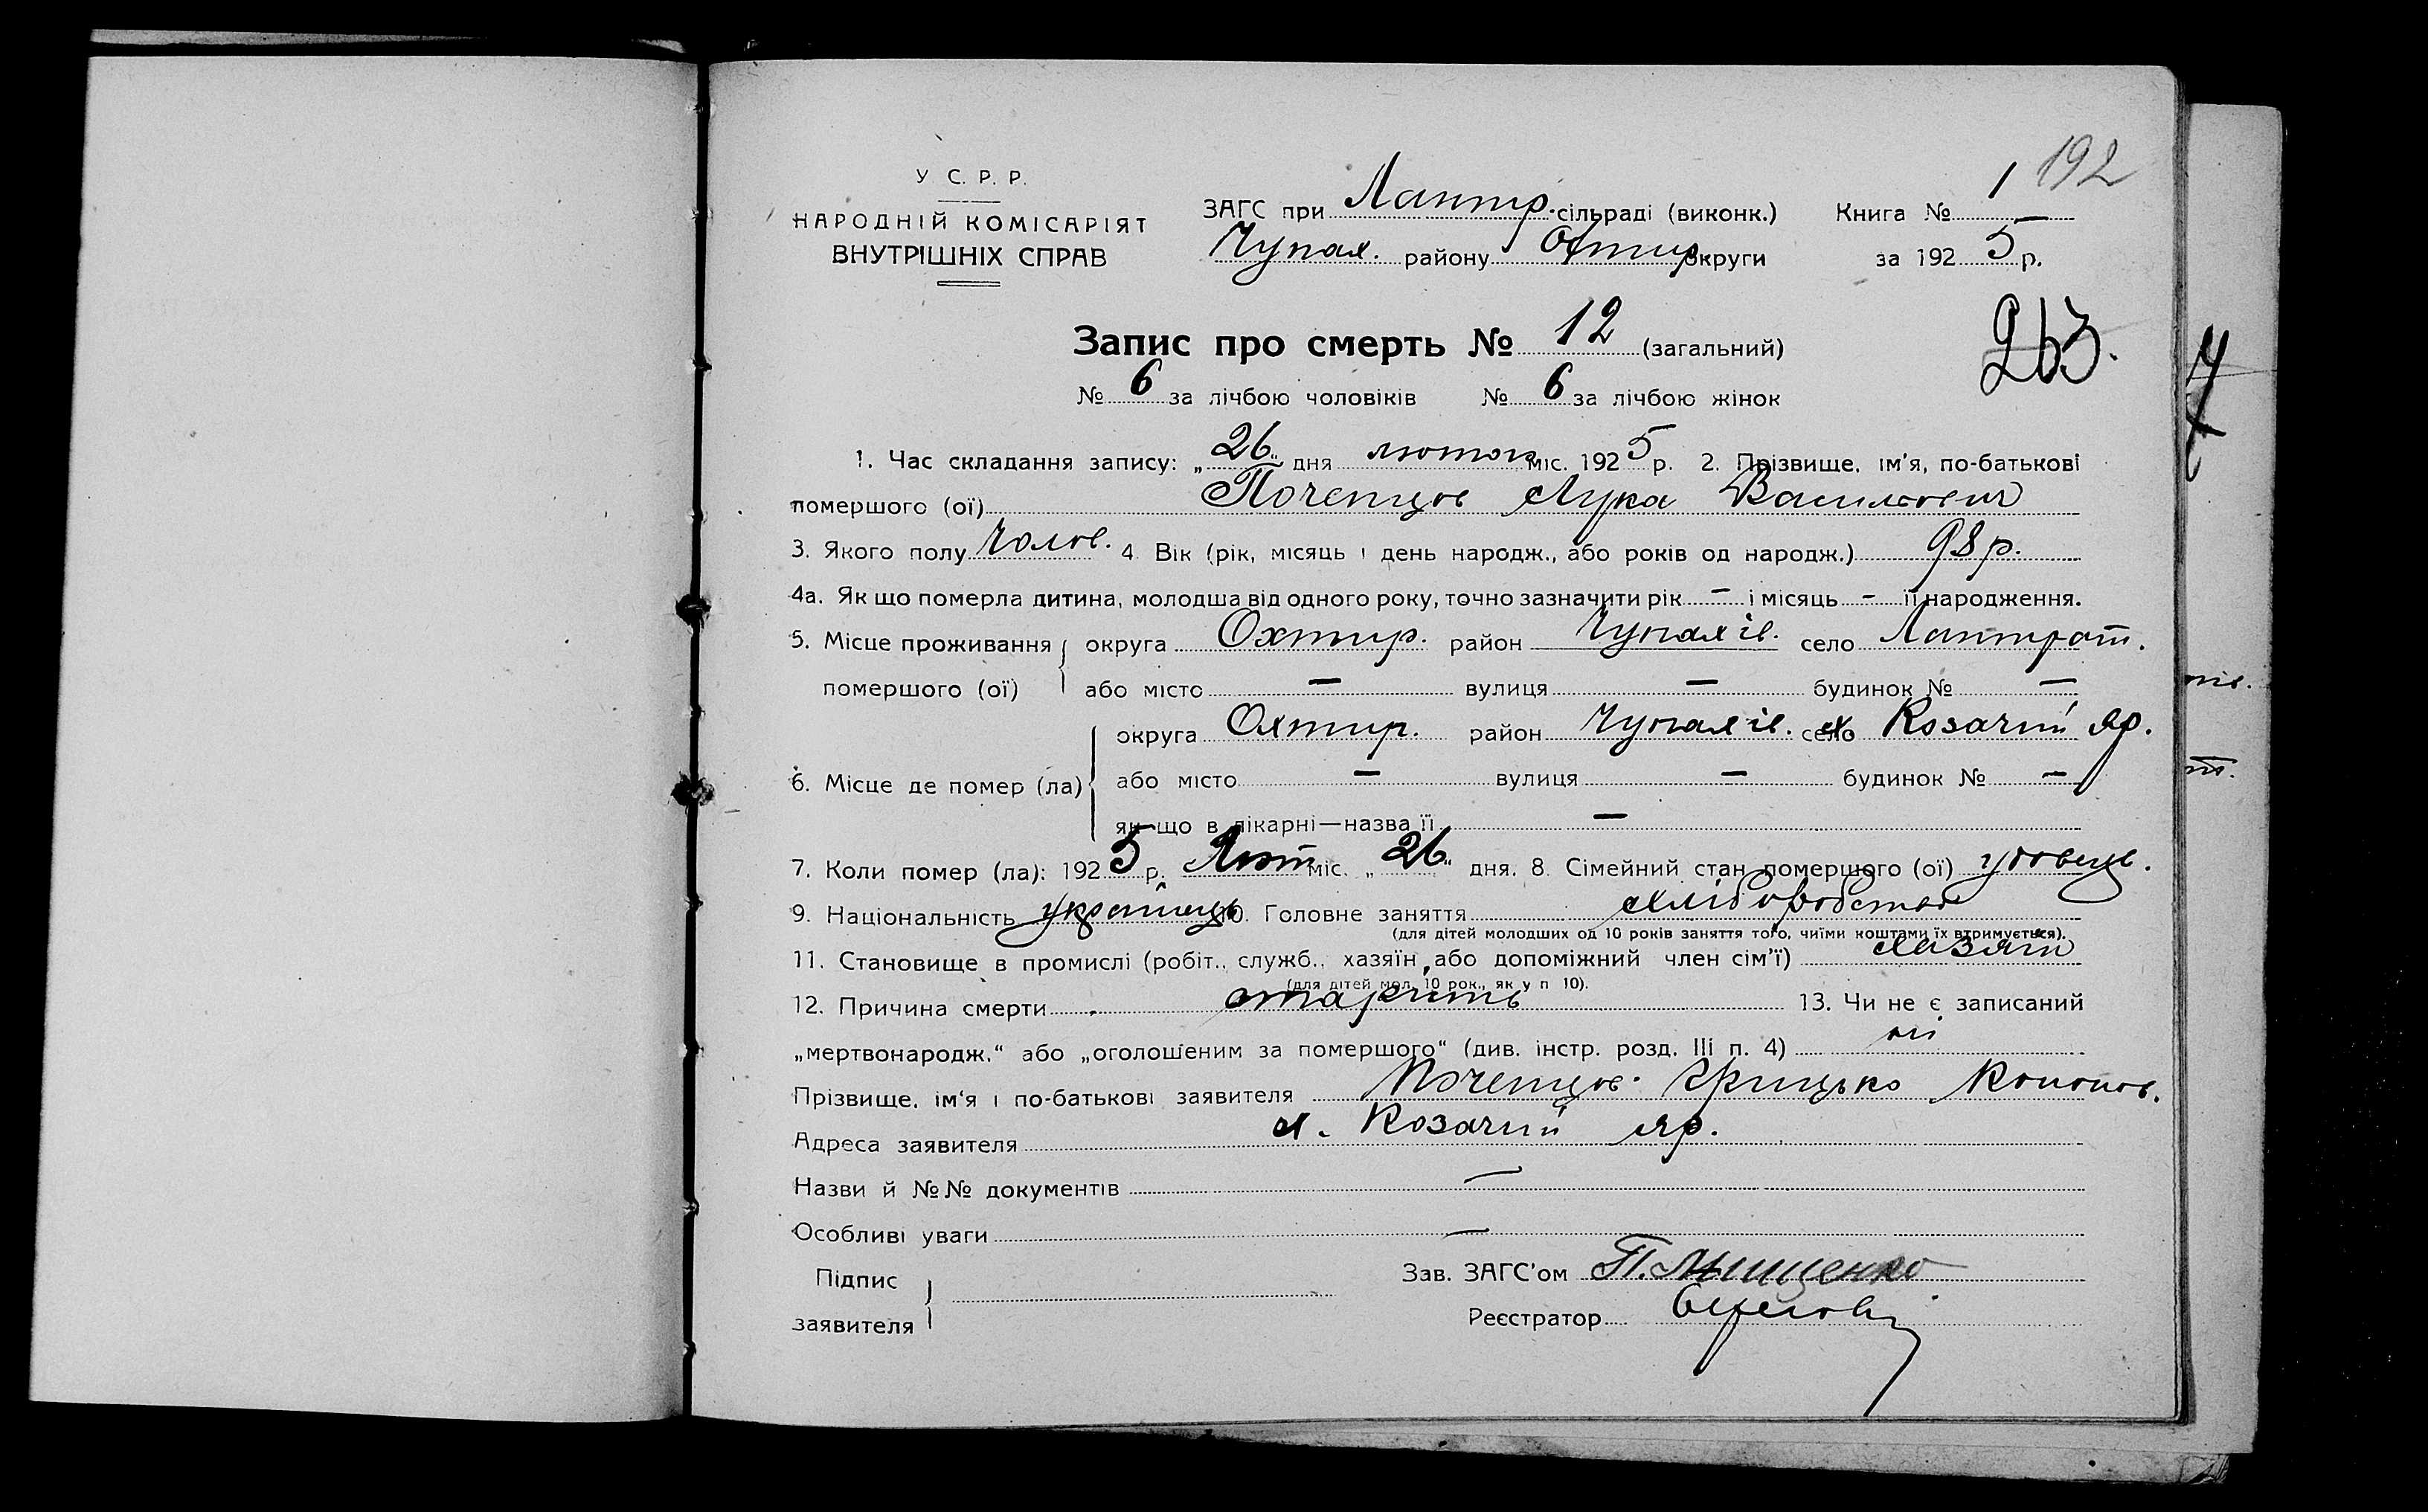 192
У С. Р. Р.
НАРОДНІЙ КОМІСАРІЯТ
ВНУТРІШНІХ СПРАВ
ЗАГС при Лантр. сільраді (виконк.) Книга № 1
Чупах. району Охтир. округи за 1925 р.
Запис про смерть № 12 (загальний)
263.
№ 6 за лічбою чоловіків № 6 за лічбою жінок
1. Час складання запису: „26“ дня лютого міс. 1925 р. 2. Прізвище, ім'я, по-батькові
помершого (ої) Почепцов Лука Васильович
3. Якого полу Чолов. 4. Вік (рік, місяць і день народж., або років од народж.) 98 р.
4а. Як що померла дитина, молодша від одного року, точно зазначити рік – і місяць – її народження.
5. Місце проживання округа Охтир. район Чупахів. село Лантрат.
помершого (ої) або місто — вулиця — будинок № —
округа Охтир. район Чупахів. село х Козачий яр.
6. Місце де помер (ла) або місто — вулиця — будинок № —
як що в лікарні—назва її —
7. Коли помер (ла): 1925 р. Лют міс. „26“ дня. 8. Сімейний стан помершого (ої) удовець.
9. Національність українець 10. Головне заняття хліборобство
(для дітей молодших од 10 років заняття того, чиїми коштами їх втримується).
11. Становище в промислі (робіт., служб., хазяїн, або допоміжний член сім'ї) хазяїн
(для дітей мол. 10 рок., як у п 10).
12. Причина смерти старість 13. Чи не є записаний
„мертвонародж.“ або „оголошеним за помершого“ (див. інстр. розд. III п. 4) ні
Прізвище, ім'я і по-батькові заявителя Почепцов Грицько Кононов.
Адреса заявителя х. Козачий яр.
Назви й №№ документів —
Особливі уваги —
Підпис
заявителя
Зав. ЗАГС'ом П. Мищенко
Реєстратор